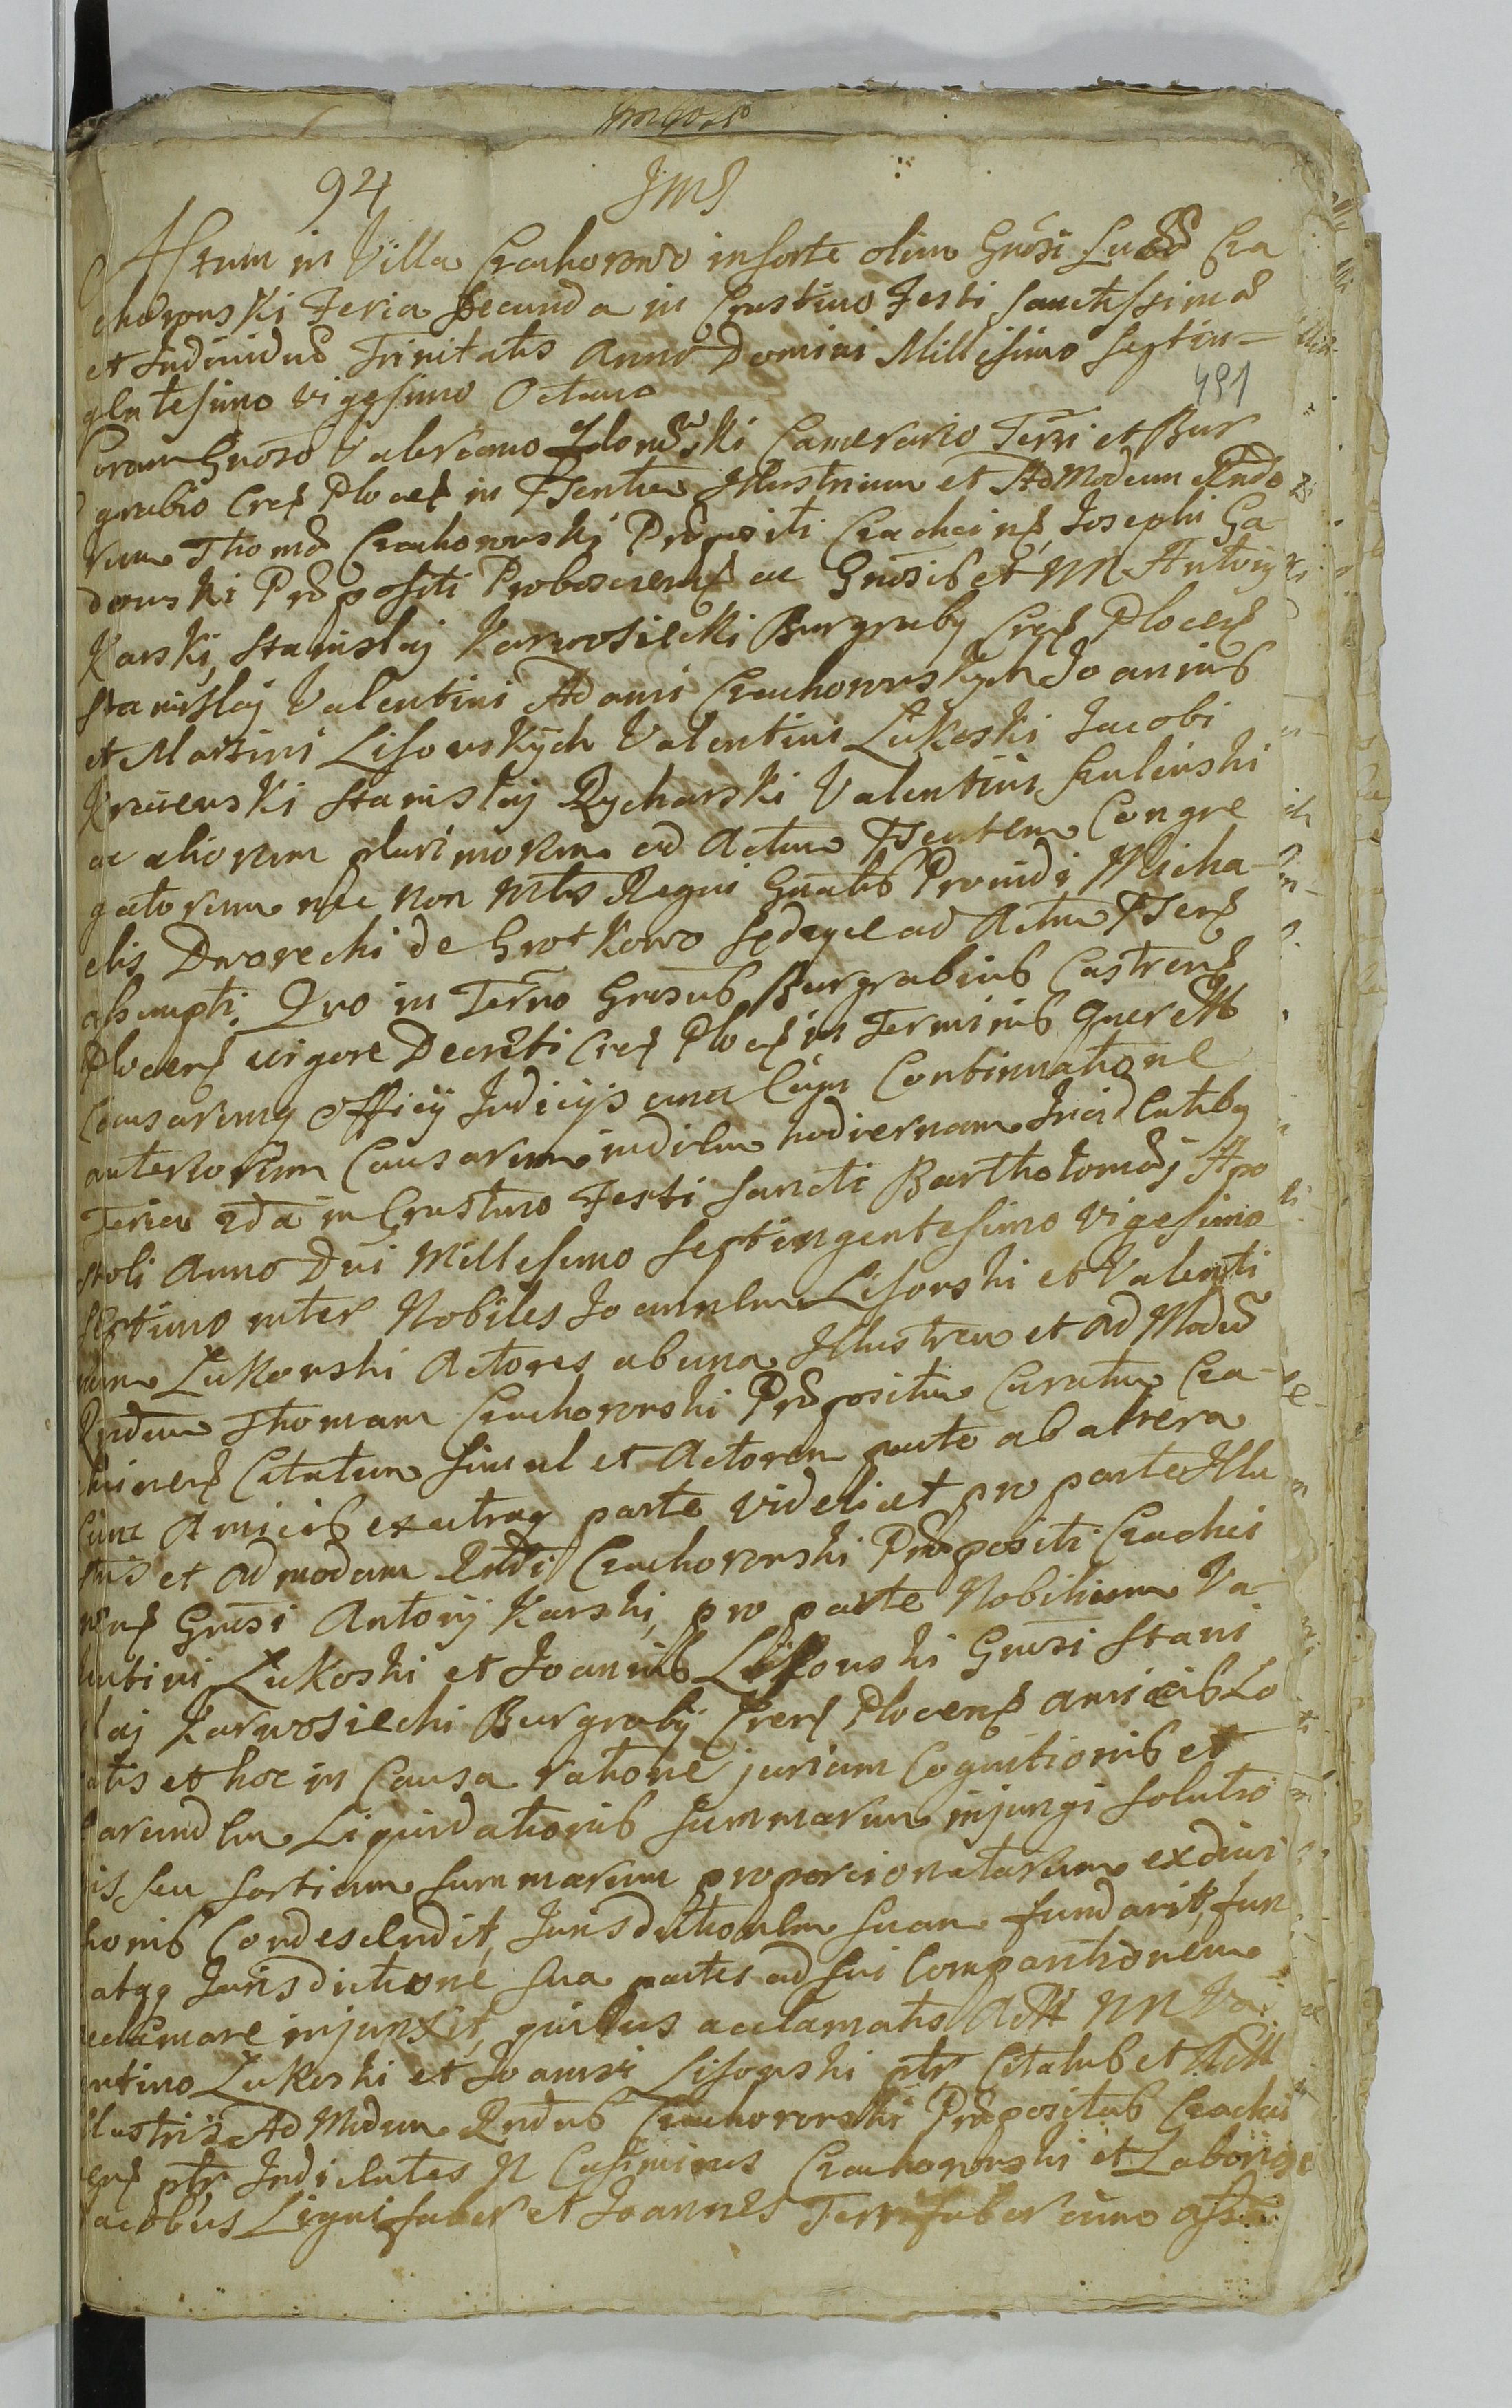 94 JMJ
Actum in Villa Czachorowo in sorte olim Gnosi Lucæ Cza
chorowski Feria Secunda in Crastino Festi Sanctissimæ
et Individuæ Trinitatis Anno Domini Millesimo Septin-
gentesimo vigesimo Octavo
491
Coram Gnoso Valeriano Camerario Terri et Bur
grabio Crens Plocens in Psentia Illustrium et Admodum Rndo
rum Thomæ Czachorowski Præpositi Czachcinens Josephi Ga
dowski Præpositi Proboscievens ac Gnosis et M Antonij
Karski, Stanislaj Karwosiecki Burgraby Crens Plocens
Stanislaj Valentini Adami Czachorowskych Joannis
et Martini Lisowskych Valentini Lukoski Jacobi
Stanislaj Rycharski Valentini Szulinski
ac aliorum plurimorum ad Actum Psentem Congre
gatorum nec non Mtis Regni Gnalis Providi Micha
elis Dworecki de Grotkowo Sedzyce ad Actum Psens
assumpti. Quo in Termo Gnosus Burgrabius Castrens
Plocens vigore Decreti Crens Plocens in Terminis Querellr
Causarumq Officij Judicijs una Cum Continuatione
anteriorum Causarum in diem hodiernam Incidentibq
Feria 2da in Crastino Festi Sancti Bartholomæj Apo
stoli Anno Dni Millesimo Septingentesimo vigesimo
septimo inter Nobiles Joannem Lisowski et Valenti
num Lukowski Actores ab una Illustrem et ad Modum
Rndum Thomam Czachorowski Præpositum Curatum Cza-
chcinens Citatum Simul et Actorem parte ab altera
cum Amicis ex utraq parte videlicet pro parte Illu
stris et admodum Rndi Czachorowski Præpositi Czachci
nens Gnosi Antonij Karski, pro parte Nobilium Va-
lentini Lukoski et Joannis Lisowski Gnosi Stani
slaj Karwosiecki Burgrabij Crens Plocens amicis Lo
catis et hoc in Causa ratione jurium Cognitionis et
earundem Liquidationis Summarum injungi solutio
nis seu sortium summarum proporcionatarum ex divi
sionis Condescendit, Jurisdictionem suam fundavit, fun
dataqq Jurisdictione sua partes ad sui Comparitionem
acclamare injunxit, quibus acclamatis Actt NN Va
lentino Lukoski et Joanni Lisowski ptr Citatus et Actt
Illustris Ad Modum Rndus Czachorowski Præpositus Czachci
nens ptr Indicentes N Casimirus Czachorowski et Laboriosi
Jacobus Lignifaber et Joannes Ferrifaber cum